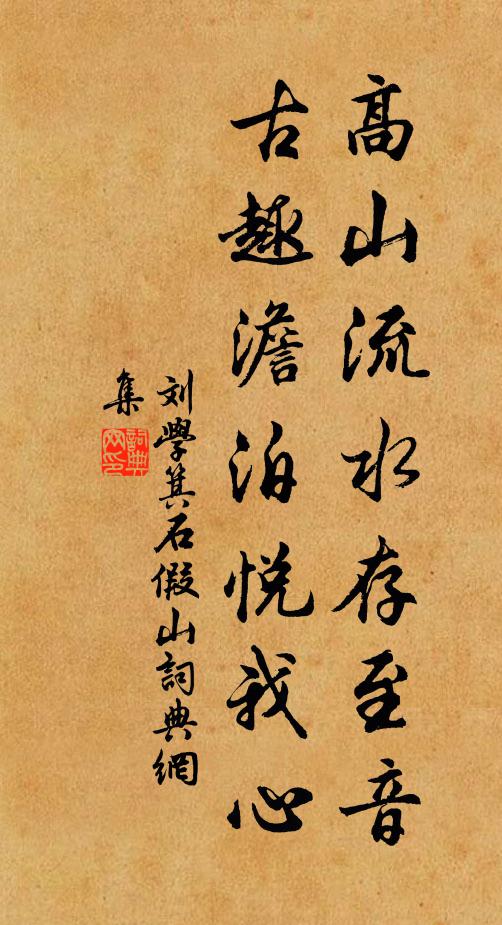 高山流水存至音
古趣澹泊悦我心
刘學箕石假山詞典網
集
詞典网印